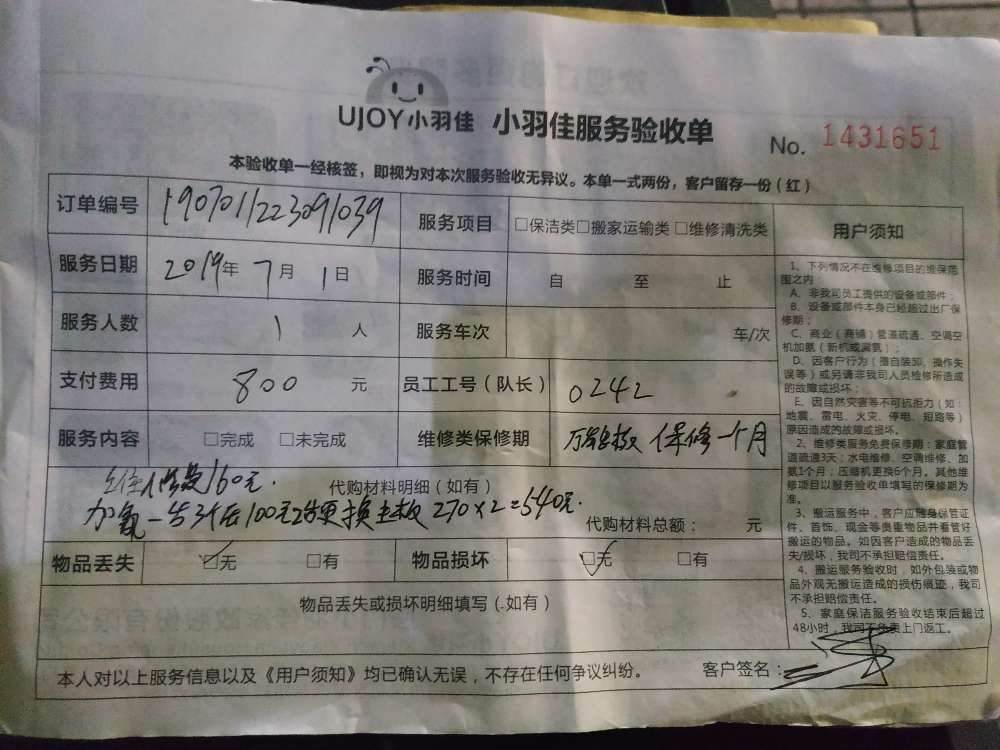 UJOY小羽佳 小羽佳服务验收单
No. 1431651
本验收单一经核签，即视为对本次服务验收无异议。本单一式两份，客户留存一份（红）
订单编号 1907011223091039 服务项目 □保洁类□搬家运输类 □维修清洗类
服务日期 2019年 7月 1日 服务时间 自 至 止
服务人数 1 人 服务车次 车/次
支付费用 800 元 员工工号（队长） 0242
服务内容 □完成 □未完成 维修类保修期 保修一个月
160元.
代购材料明细（如有）
加氟一 100元 更换主板 270×2=540元.
代购材料总额： 元
物品丢失 ☑无 □有 物品损坏 ☑无 □有
物品丢失或损坏明细填写（如有）
本人对以上服务信息以及《用户须知》均已确认无误，不存在任何争议纠纷。 客户签名：
用户须知
1、下列情况不在维修项目的维保范
围之内：
A、非我司员工提供的设备或部件；
B、设备或部件本身已经超过出厂保
修期；
C、商业（商铺）管道疏通、空调空
机加氨（新机或漏氨）；
D、因客户行为（擅自装卸、操作失
误等）或另请非我司人员检修所造成
的故障或损坏；
E、因自然灾害等不可抗拒力（如：
地震、雷电、火灾、停电、短路等）
原因造成的故障或损坏。
2、维修类服务免费保修期：家庭管
道疏通3天；水电维修、空调维修、加
氨1个月；压缩机更换6个月。其他维
修项目以服务验收单填写的保修期为
准。
3、搬运服务中，客户应随身保管证
件、首饰、现金等贵重物品并看管好
搬运的物品。如因客户造成的物品丢
失/损坏，我司不承担赔偿责任。
4、搬运服务验收时，如外包装或物
品外观无搬运造成的损伤痕迹，我司
不承担赔偿责任。
5、家庭保洁服务验收结束后超过
48小时，我司不负责上门返工。